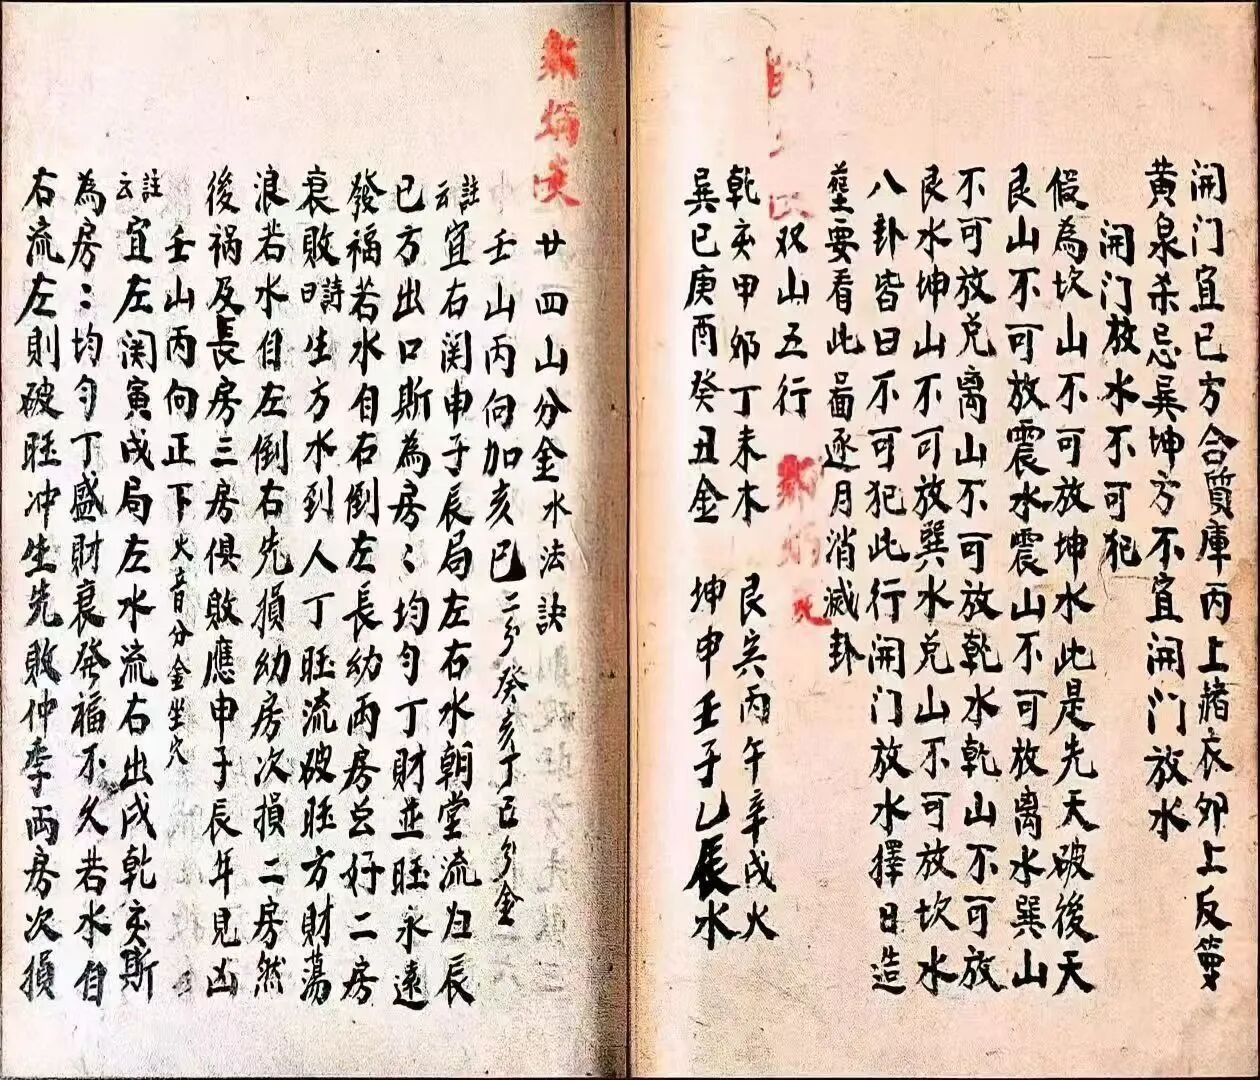 開门宜巳方合質庫丙上赭衣卯上反
黄泉杀忌巽坤方不宜開门放水
開门放水不可犯
假為坎山不可放坤水此是先天破後天
艮山不可放震水震山不可放离水巽山
不可放兑离山不可放乾水乾山不可放
艮水坤山不可放巽水兑山不可放坎水
八卦皆曰不可犯此行開门放水擇日造
塟要看此啚逐月消滅卦
双山五行
乾亥甲卯丁未木 艮寅丙午辛戌火
巽巳庚酉癸丑金 坤申壬子乙辰水
鄭炳
廿四山分金水法訣
壬山丙向加亥巳二分癸亥丁巳分金
註云宜右関申子辰局左右水朝堂流归辰
巳方出口斯為房〻均匀丁財並旺永遠
發福若水自右倒左長幼两房总好二房
衰敗詩曰生方水到人丁旺流破旺方財蕩
浪若水自左倒右先損幼房次損二房然
後祸及長房三房俱敗應申子辰年見凶
壬山丙向正下火音分金坐穴
註云宜左関寅戌局左水流右出戌乾亥斯
為房〻均匀丁盛財衰發福不久若水自
右流左則破旺冲生先敗仲季两房次損